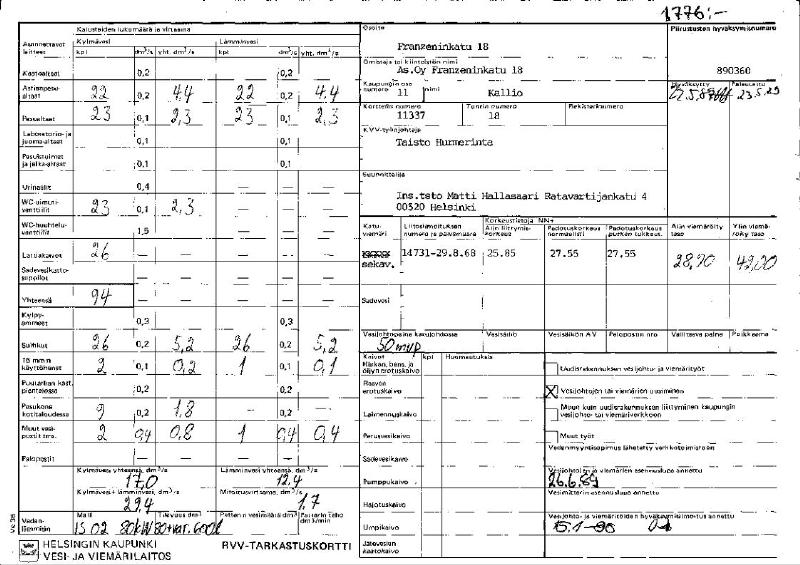 1776:-
Kalusteiden lukumäärä ja virtaama
Osoite
Piirustusten hyväksymisnumero
Asennettavat laitteet
Kylmävesi
Lämminvesi
kpl dm³/s yht. dm³/s kpl dm³/s yht. dm³/s
Franzeninkatu 18
Omistaja tai kiinteistön nimi
As.Oy Franzeninkatu 18
890360
Kaupunginosa numero 11 nimi Kallio
Hyväksytty Palautettu
23.5.89
Korttelin numero Tontin numero Rekisterinumero
11337 18
KVV-työnjohtaja
Taisto Hurmerinta
Suunnittelija
Ins.tsto Matti Hallasaari Ratavartijankatu 4
00520 Helsinki
Kastoaltaat 0,2 — — 0,2 —
Astianpesualtaat 22 0,2 4,4 22 0,2 4,4
Pesualtaat 23 0,1 2,3 23 0,1 2,3
Laboratorio- ja juoma-altaat 0,1 — — 0,1 —
Pesukulmat ja jalka-altaat 0,1 0,1
Urinaalit 0,4 — — — —
WC-uimuriventtiilit 23 0,1 2,3 — — —
WC-huuhteluventtiilit 1,5 — — — —
Lattiakaivot 26 — — — — —
Sadevesikattosuppilot — — — — —
Yhteensä 94 — — — — —
Kylpyammeet 0,3 0,3
Suihkut 26 0,2 5,2 26 0,2 5,2
15 mm:n käyttöhanat 2 0,1 0,2 1 0,1 0,1
Puutarhan kast. pientalossa 0,2 0,2
Pesukone kotitaloudessa 9 0,2 1,8 0,2
Muut vesipostit ym. 2 0,4 0,8 1 0,4 0,4
Palopostit — — — — —
Kylmävesi yhteensä, dm³/s
17,0
Lämminvesi yhteensä, dm³/s
12,4
Kylmävesi + lämminvesi, dm³/s
29,4
Mitoitusvirtaama, dm³/s
1,7
Vedenlämmitin
Malli Tilavuus dm³ Patterin vesimäärä dm³ Pattarin teho dm³/min
LS 02 80kW 80+var. 600l
Katuviemäri
Liitoslausunnon numero ja päivämäärä
Korkeustietoja NN+
Alin liittymiskorkeus
Padotuskorkeus normaalisti
Padotuskorkeus putken tukkeut.
Alin viemäröity taso
Ylin viemäröity taso
sekav. 14731-29.8.68 25.85 27.55 27,55 28,90 49,00
Sadevesi
Vesijohtopaine katujohdossa Vesisäiliö Vesisäiliön A V Palopostin nro Vallitseva paine Poikkeama
50 mvp
Kaivot kpl Huomautuksia
Hiekan, bens. ja öljynerotuskaivo
Rasvanerotuskaivo
Laimennuskaivo
Perusvesikaivo
Sadevesikaivo
Pumppukaivo
Hajotuskaivo
Umpikaivo
Jäteveden kaatokaivo
Uudisrakennuksen vesijohto- ja viemärityöt
X Vesijohtojen tai viemäriön uusiminen
Muun kuin uudisrakennuksen liittyminen kaupungin vesijohto- tai viemäriverkkoon
Muut työt
Vedenmyyntisopimus lähetetty verkkotoimistoon
Vesijohto- ja viemärien asennuslupa annettu
26.6.89
Vesimittarin asennuslupa annettu
Vesijohto- ja viemäritöiden hyväksymisilmoitus annettu
15.1-90
Vc 38
HELSINGIN KAUPUNKI
VESI- JA VIEMÄRILAITOS
RVV-TARKASTUSKORTTI